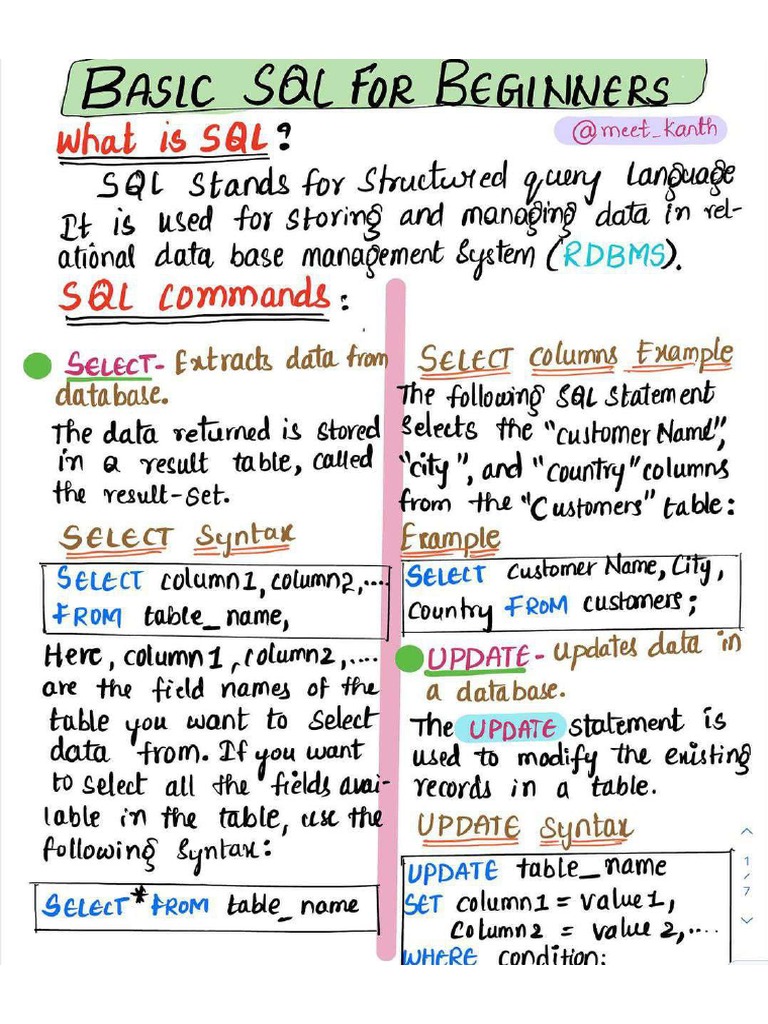 BASIC SQL FOR BEGINNERS
What is SQL?
@meet_kanth
SQL stands for Structured query Language
It is used for storing and managing data in rel-
ational data base management System (RDBMS).
SQL commands:
SELECT- Extracts data from
database.
The data returned is stored
in a result table, called
the result-set.
SELECT Syntax
SELECT column1, column2,....
FROM table_name,
Here, column1, column2,....
are the field names of the
table you want to select
data from. If you want
to select all the fields avai-
lable in the table, use the
following syntax:
SELECT * FROM table_name
SELECT columns Example
The following SQL statement
selects the "customer Name",
"city", and "country" columns
from the "Customers" table:
Example
SELECT customer Name, City,
Country FROM customers;
UPDATE - updates data in
a database.
The UPDATE statement is
used to modify the existing
records in a table.
UPDATE Syntax
UPDATE table_name
SET column1 = value1,
column2 = value 2,....
WHERE condition;
1
/
7